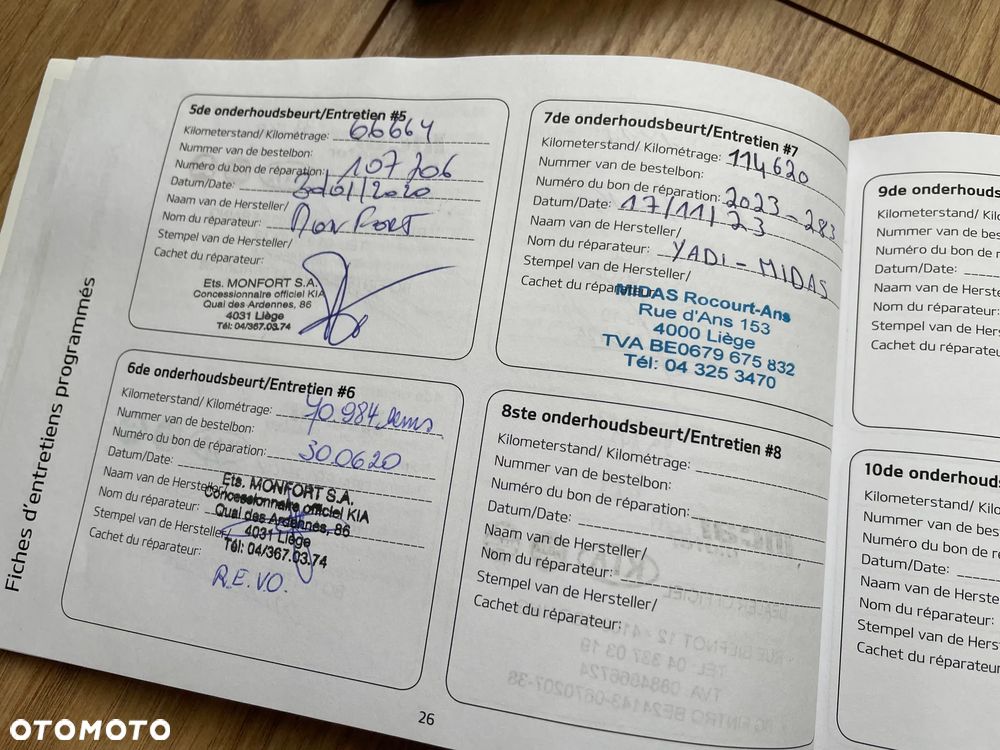 Fiches d'entretiens programmés
5de onderhoudsbeurt/Entretien #5
Kilometerstand/ Kilométrage: 66664
Nummer van de bestelbon:
Numéro du bon de réparation: 107706
Datum/Date: 30/01/2020
Naam van de Hersteller/
Nom du réparateur: MonFort
Stempel van de Hersteller/
Cachet du réparateur:
Ets. MONFORT S.A.
Concessionnaire officiel KIA
Quai des Ardennes, 86
4031 Liège
Tél: 04/367.03.74
6de onderhoudsbeurt/Entretien #6
Kilometerstand/ Kilométrage: 70.984
Nummer van de bestelbon:
Numéro du bon de réparation: 30.0620
Datum/Date:
Naam van de Hersteller/
Nom du réparateur:
Stempel van de Hersteller/
Cachet du réparateur:
Ets. MONFORT S.A.
Concessionnaire officiel KIA
Quai des Ardennes, 86
4031 Liège
Tél: 04/367.03.74
R.E.V.O.
7de onderhoudsbeurt/Entretien #7
Kilometerstand/ Kilométrage: 114620
Nummer van de bestelbon:
Numéro du bon de réparation: 2023-283
Datum/Date: 17/11/23
Naam van de Hersteller/
Nom du réparateur: YADI-MIDAS
Stempel van de Hersteller/
Cachet du réparateur:
MIDAS Rocourt-Ans
Rue d'Ans 153
4000 Liège
TVA BE0679 675 832
Tél: 04 325 3470
8ste onderhoudsbeurt/Entretien #8
Kilometerstand/ Kilométrage:
Nummer van de bestelbon:
Numéro du bon de réparation:
Datum/Date:
Naam van de Hersteller/
Nom du réparateur:
Stempel van de Hersteller/
Cachet du réparateur:
26
9de onderhouds
Kilometerstand/ Kilo
Nummer van de bes
Numéro du bon de r
Datum/Date:
Naam van de Herste
Nom du réparateur:
Stempel van de Hers
Cachet du réparateu
10de onderhouds
Kilometerstand/ Kilo
Nummer van de bes
Numéro du bon de r
Datum/Date:
Naam van de Herste
Nom du réparateur:
Stempel van de Hers
Cachet du réparateur
OTOMOTO